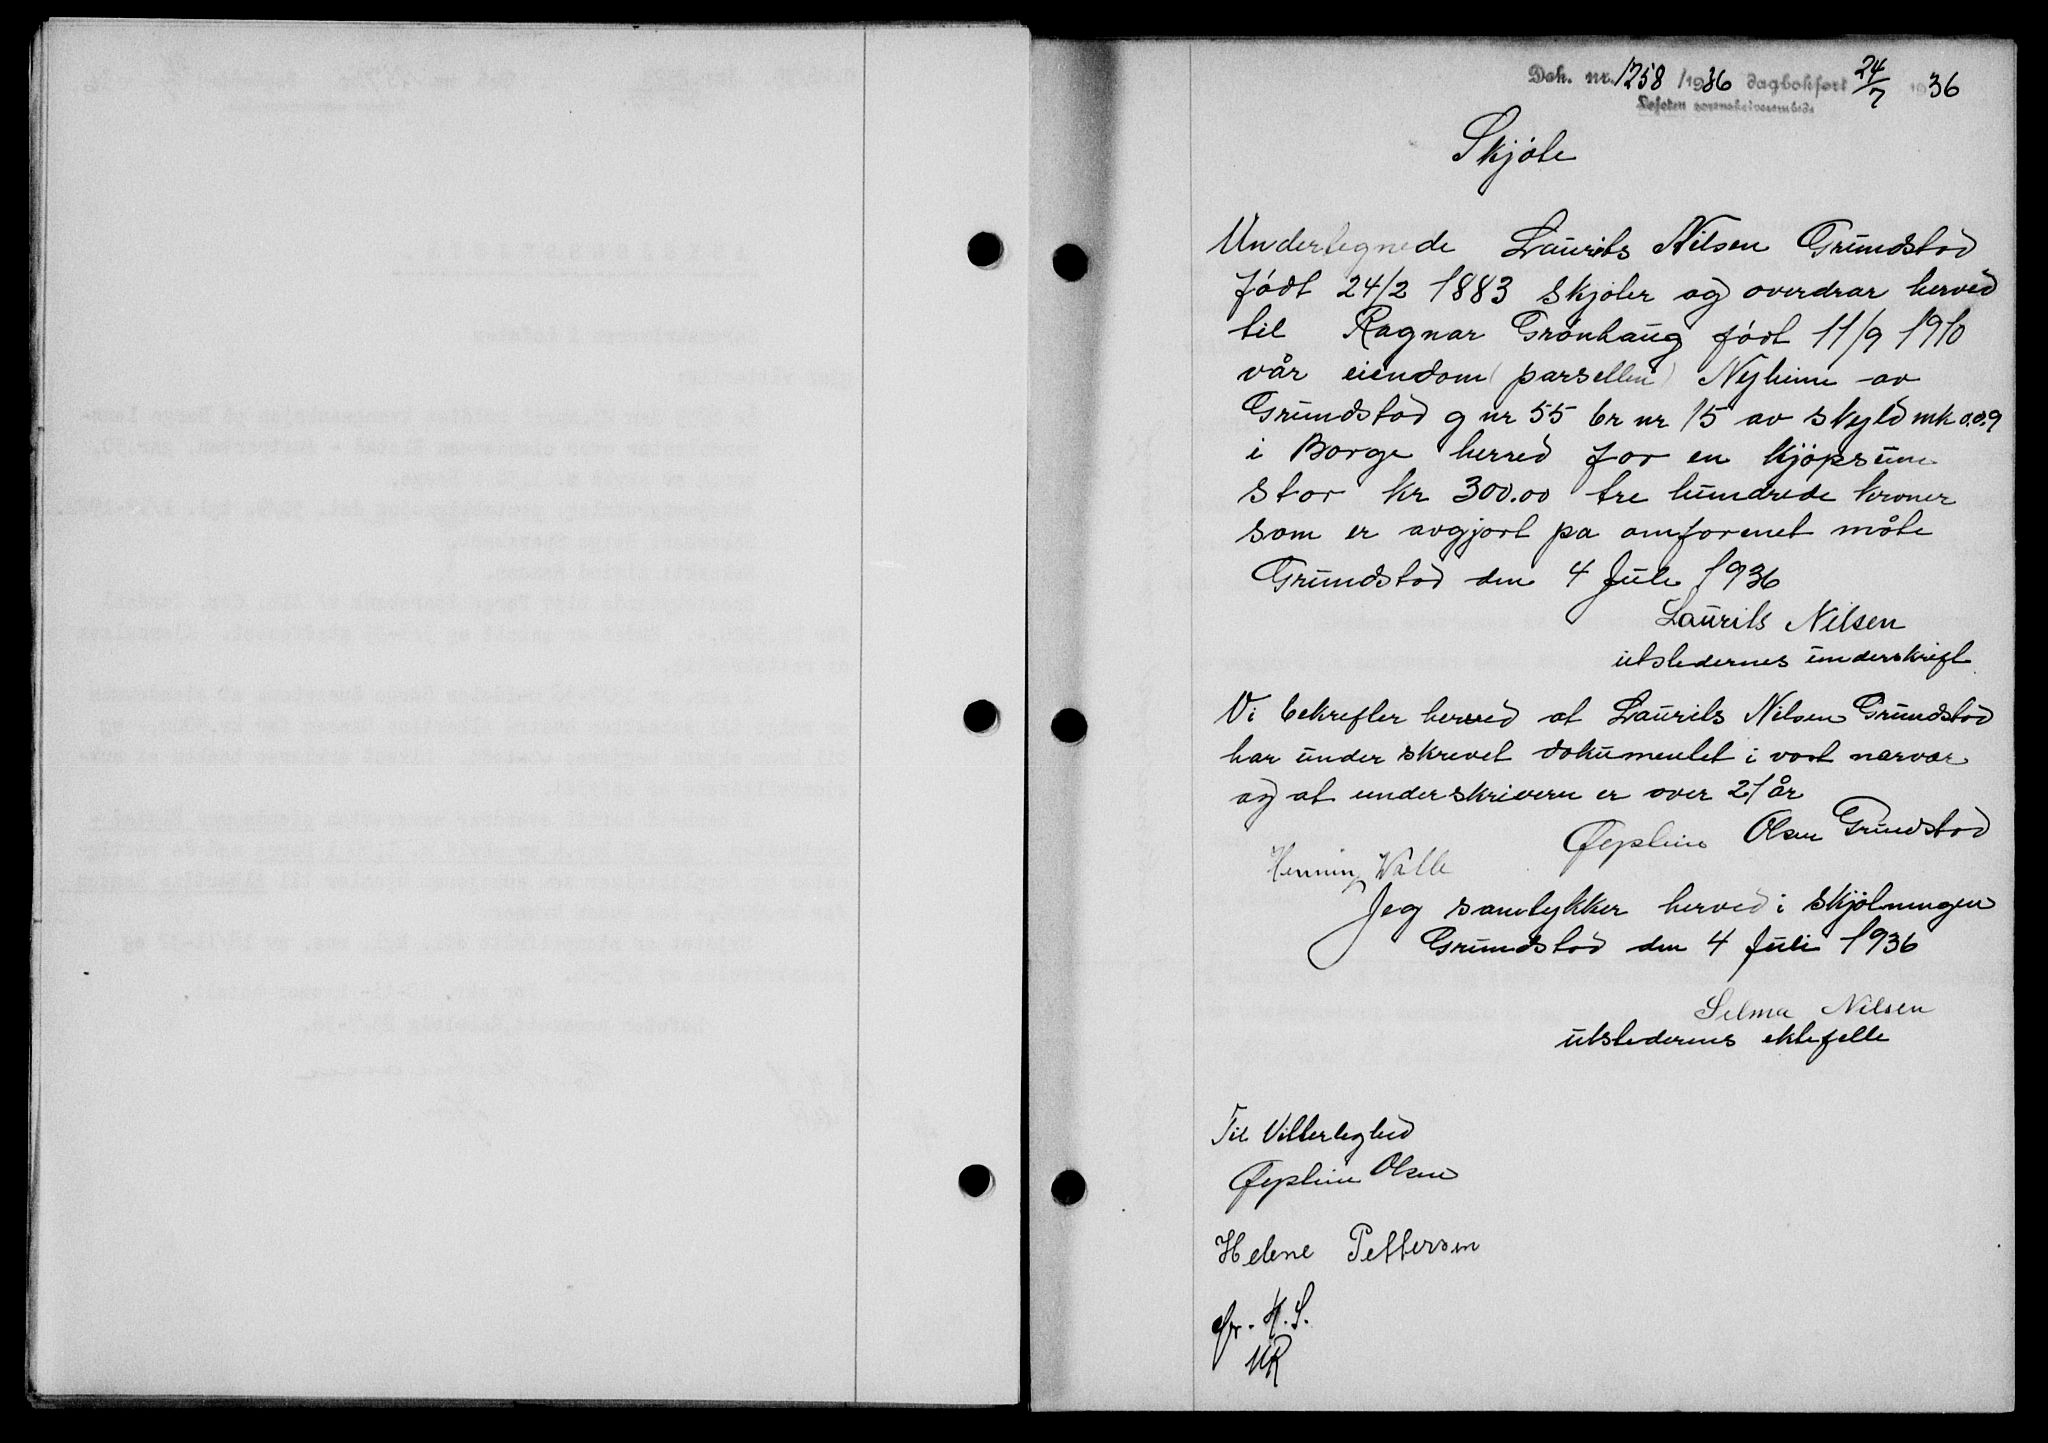 Dok. nr. 1258 /1936 dagbokført 24/7 1936
Lofoten sorenskriverembede
Skjøte
Undertegnede Laurits Nilsen Grundstad
født 24/2 1883 skjøter og overdrar herved
til Ragnar Grønhaug født 11/9 1910
vår eiendom (parsellen) Nyheim av
Grundstad g nr 55 br nr 15 av skyld mk 0.09
i Borge herred for en kjøpsum
stor kr 300.00 tre hundrede kroner
som er avgjort på omforenet måte
Grundstad den 4 Juli 1936
Laurits Nilsen
utstedernes underskrift
Vi bekrefter herved at Laurits Nilsen Grundstad
har underskrevet dokumentet i vort nærvær
og at underskriveren er over 21 år
Olsen Grundstad
Henning Walle
Jeg samtykker herved i skjøtningen
Grundstad den 4 Juli 1936
Selma Nilsen
utstederens ektefelle
Til Vitterlighed
Olsen
Helene Pettersen
H. S.
MR